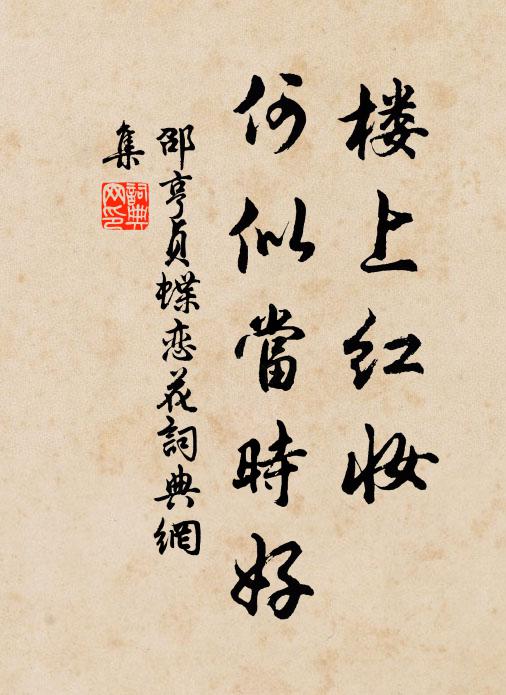 楼上红妆
何似當時好
邵亨贞蝶恋花詞典網
集
詞典網印